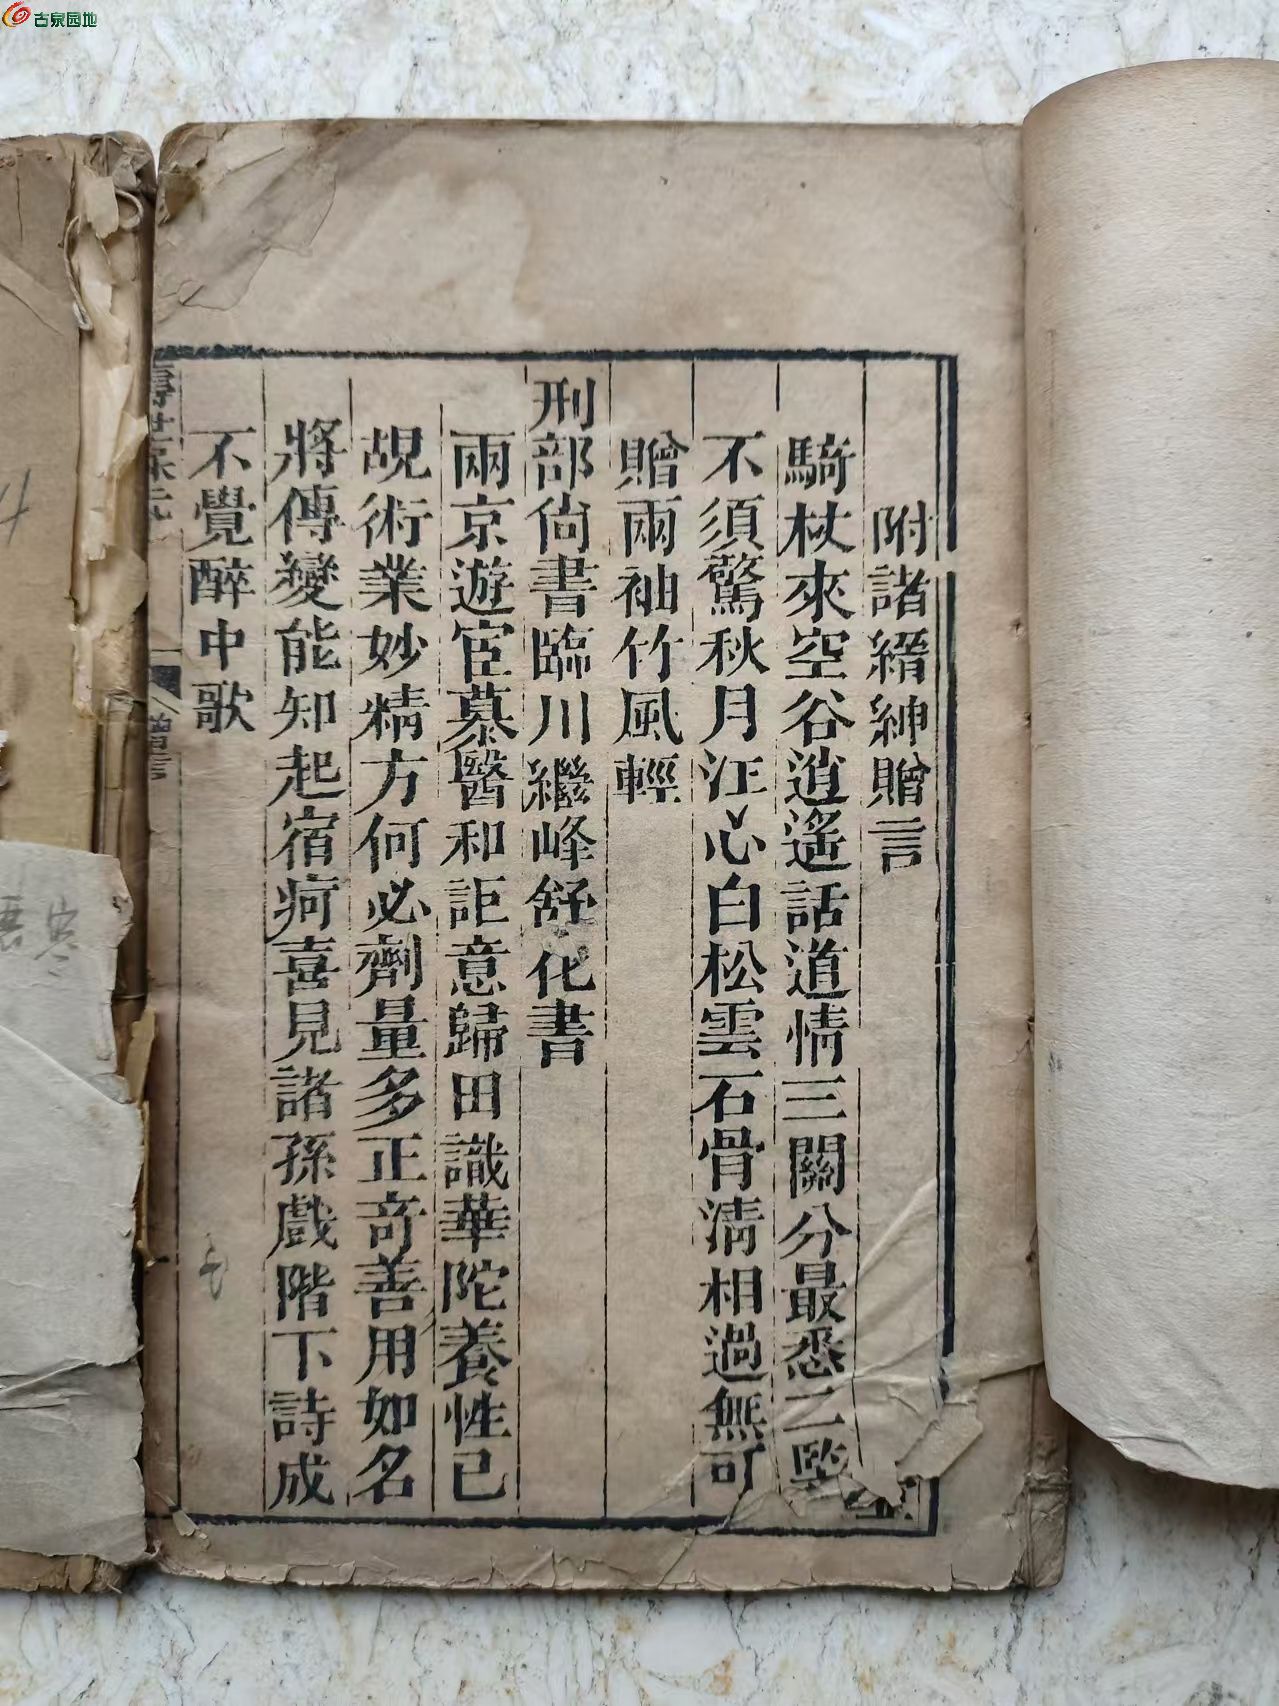 古泉园地
附諸縉紳贈言
騎杖來空谷逍遙話道情三關分最悉二豎
不須驚秋月江心白松雲石骨淸相過無可
贈兩袖竹風輕
刑部尙書臨川繼峰舒化書
兩京遊宦慕醫和詎意歸田識華陀養性已
覘術業妙精方何必劑量多正竒善用如名
將傳變能知起宿疴喜見諸孫戲階下詩成
不覺醉中歌
壽世保元
贈言